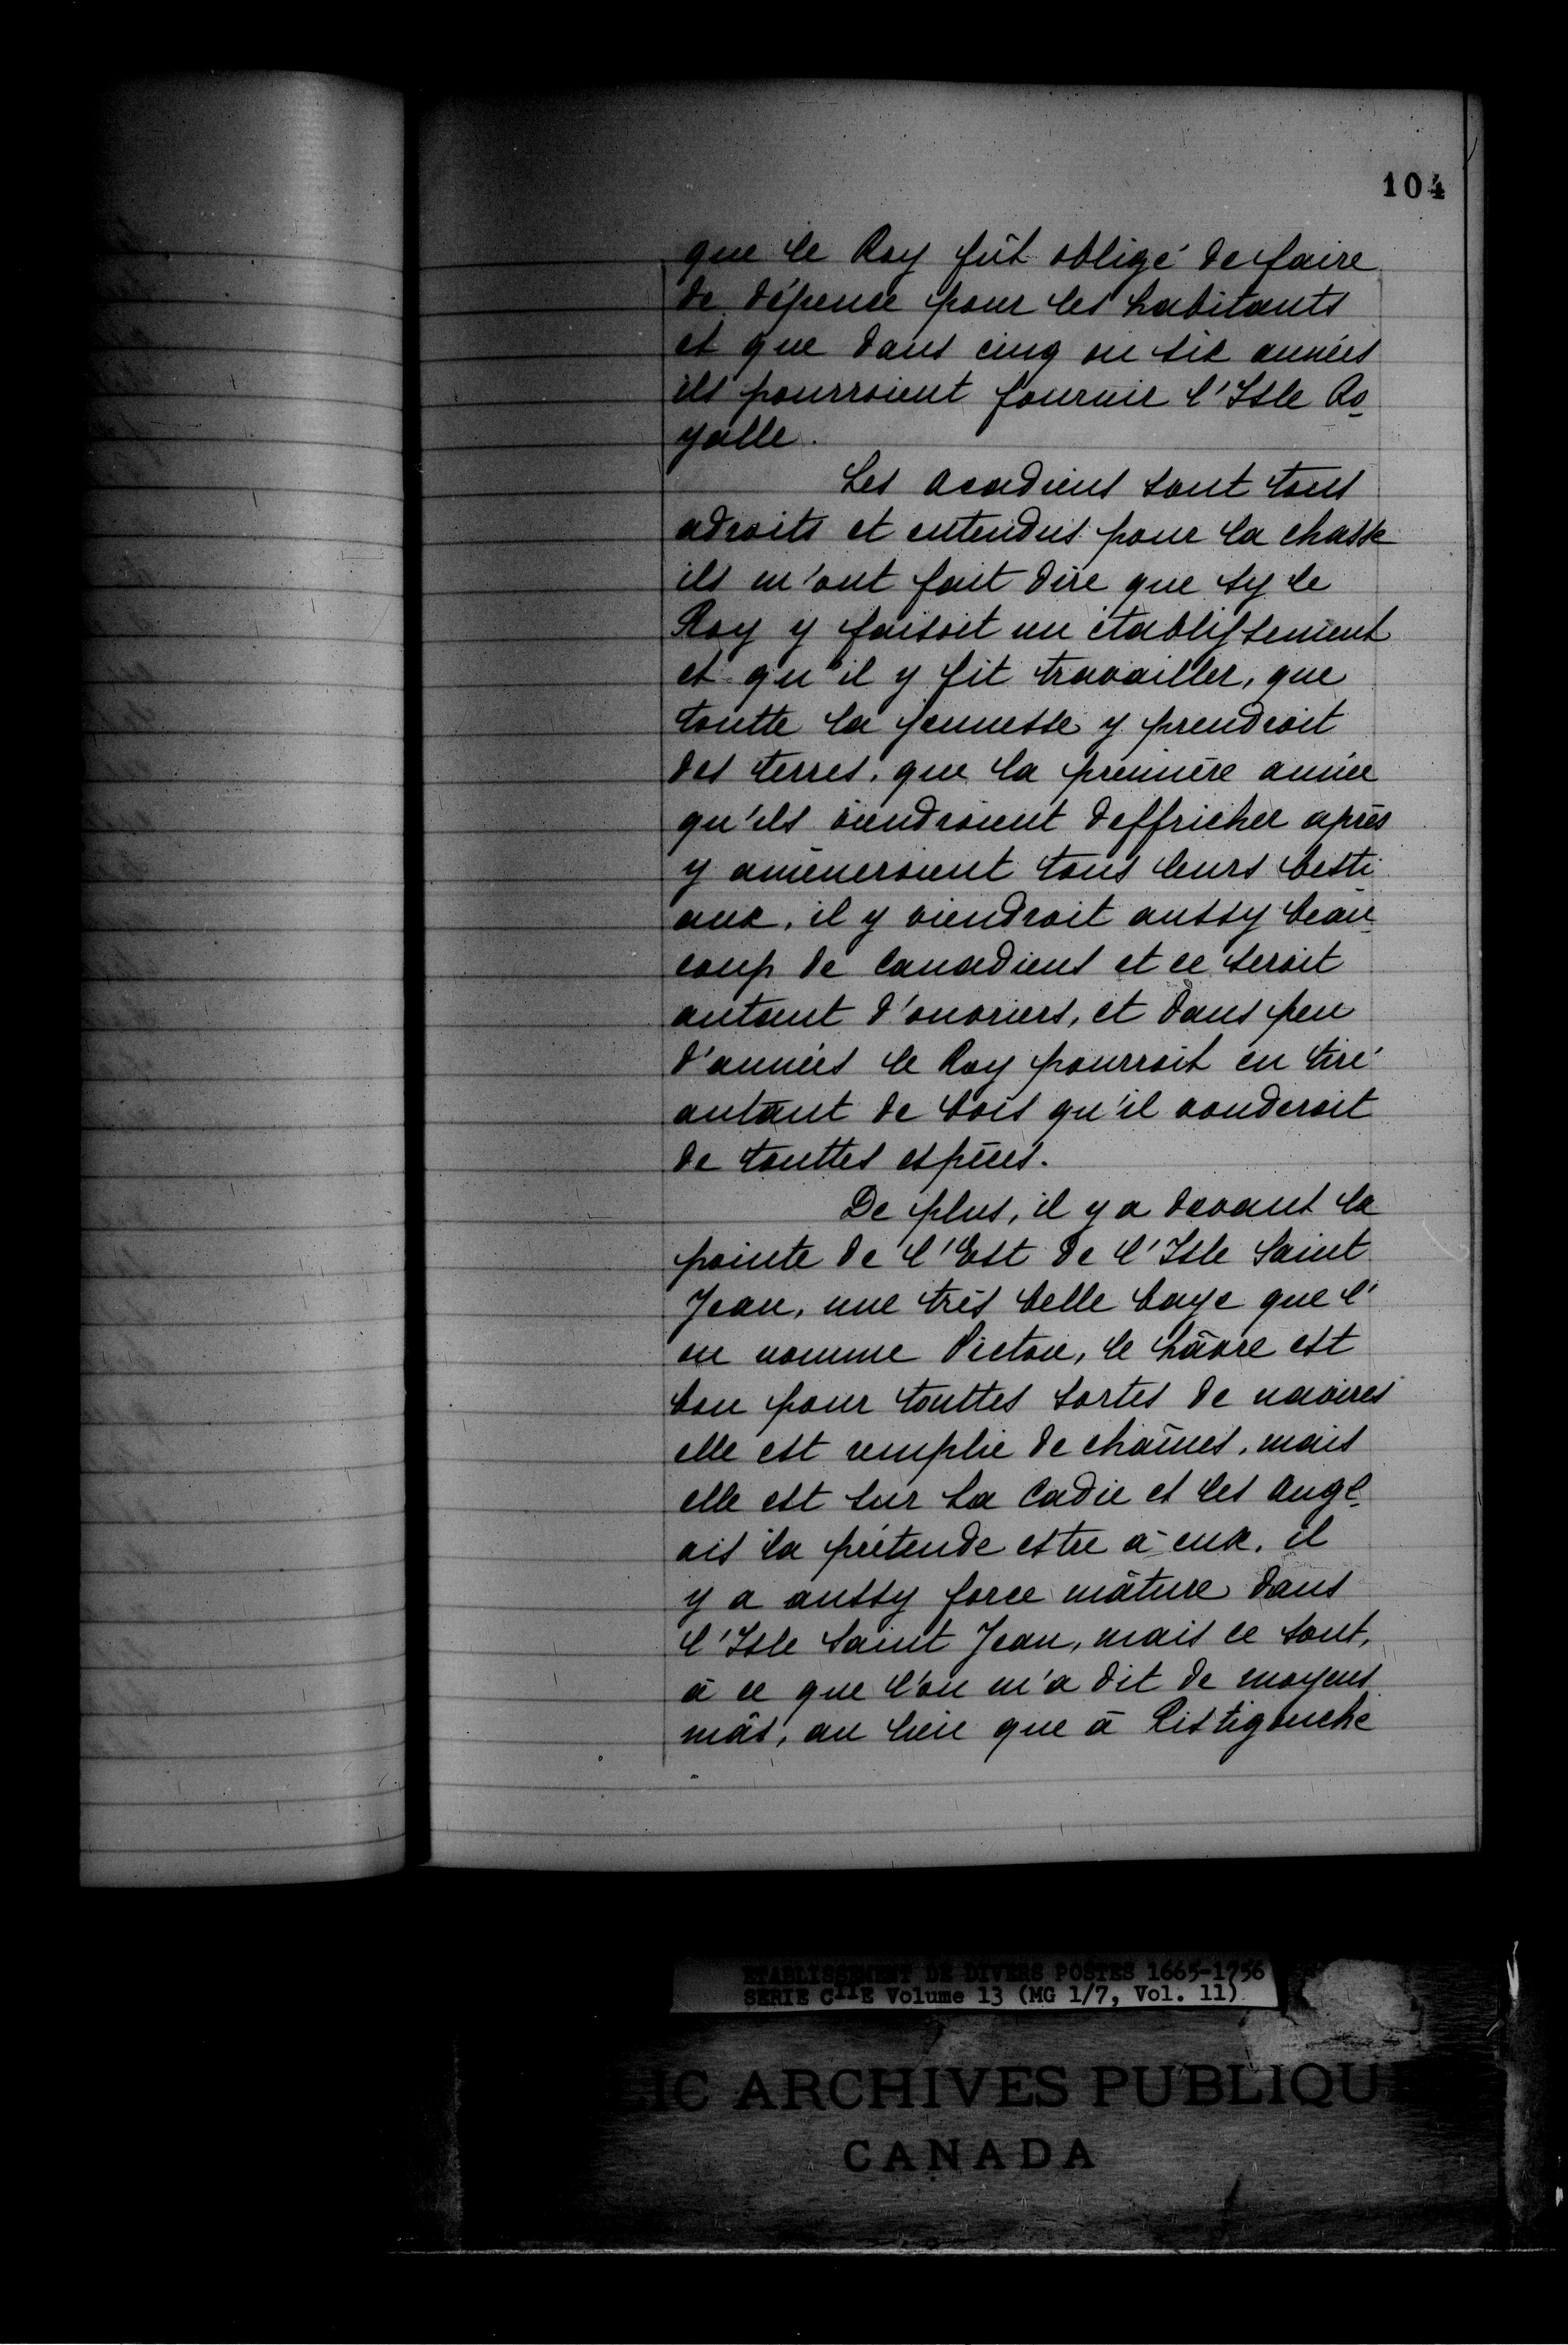 104
que le Roy fût obligé de faire
de dépense pour les habitants
et que dans cinq ou six années
ils pourroient fournir l'Isle Ro-
yalle.
Les acadiens sont tous
adroits et entendus pour la chasse
ils m'ont fait dire que sy le
Roy y faisoit un établissement
et qu'il y fit travailler, que
toutte la jeunesse y prendroit
des terres, que la première année
qu'ils viendroient deffricher après
y amèneroient tous leurs besti-
aux, il y viendroit aussy beau-
coup de Canadiens et ce seroit
autant d'ouvriers, et dans peu
d'années le Roy pourroit en tiré
autant de bois qu'il vouderoit
de touttes espèces.
De plus, il y a devant la
pointe de l'Est de l'Isle Saint
Jean, une très belle baye que l'
on nomme Pictou, le hâvre est
bon pour touttes sortes de navires
elle est remplie de chaînes, mais
elle est sur la Cadie et les Angl-
ais la prétende estre à eux, il
y a aussy force mâture dans
l'Isle Saint Jean, mais ce sont,
à ce que l'on m'a dit de moyens
mâs, au lieu que à Ristigouche
ETABLISSEMENT DE DIVERS POSTES 1665-1756
SERIE C11E Volume 13 (MG 1/7, Vol. 11)
LIC ARCHIVES PUBLIQUE
CANADA